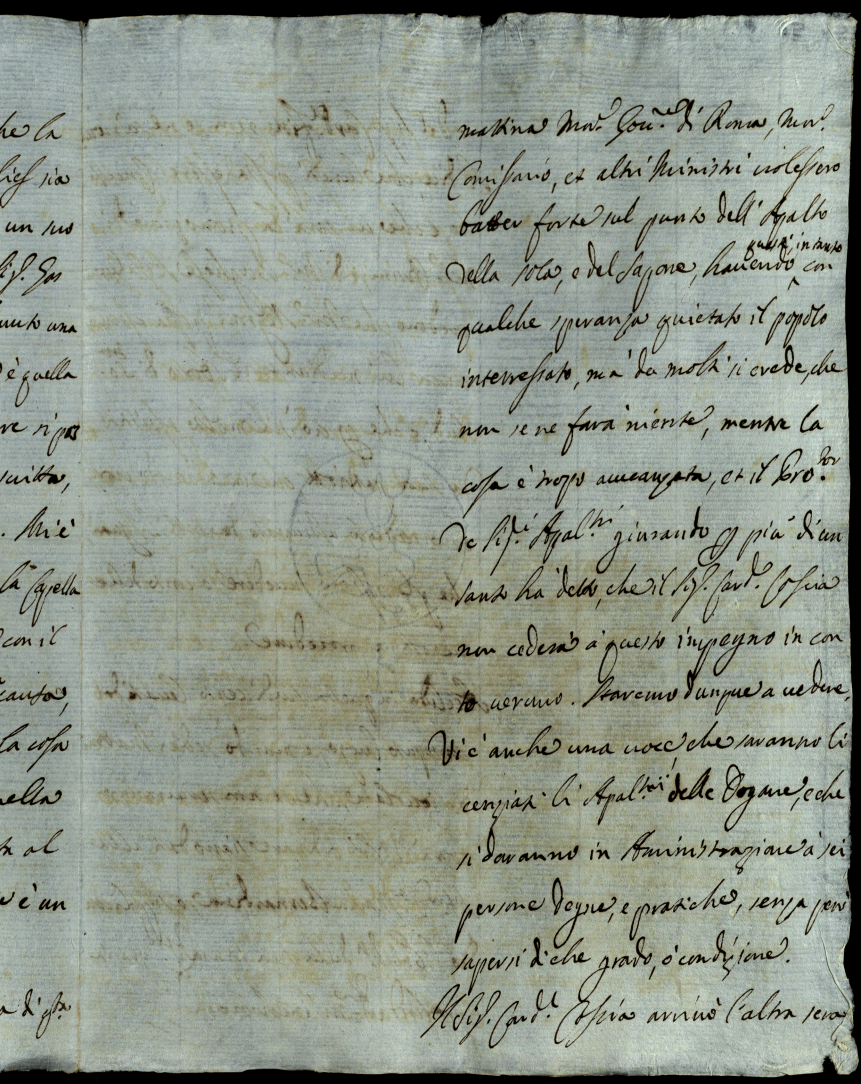 he la
sia
un suo
Sig.
uuto una
è quella
re si por
scritta,
. Mi è
la Capella
con il
causa,
la cosa
nella
al
è un
a di qsta
mattina Mon.r Gou.re di Roma, Mon.r
Comissario, et altri Ministri uolessero
batter forte sul punto dell' Apalto
della sola, e del sapone, hauendo quasi intanto con
qualche speranza quietato il popolo
interessato, mà da molti si crede, che
non se ne farà niente, mentre la
cosa è tropo auuanzata, et il Pro.tor
de Sig.i Apal.tri giurando p più di un
santo hà detto, che il Sig. Card. Coscia
non cederà à questo impegno in con
to ueruno. Staremo dunque a uedere,
Vi è anche una uoce, che saranno li
cenziati li Apal.tri delle Dogane, e che
si daranno in Aministrazione à sei
persone degne, e pratiche, senza però
sapersi di che grado, ò condizione.
Il Sig. Card.l Coscia arriuò l'altra sera